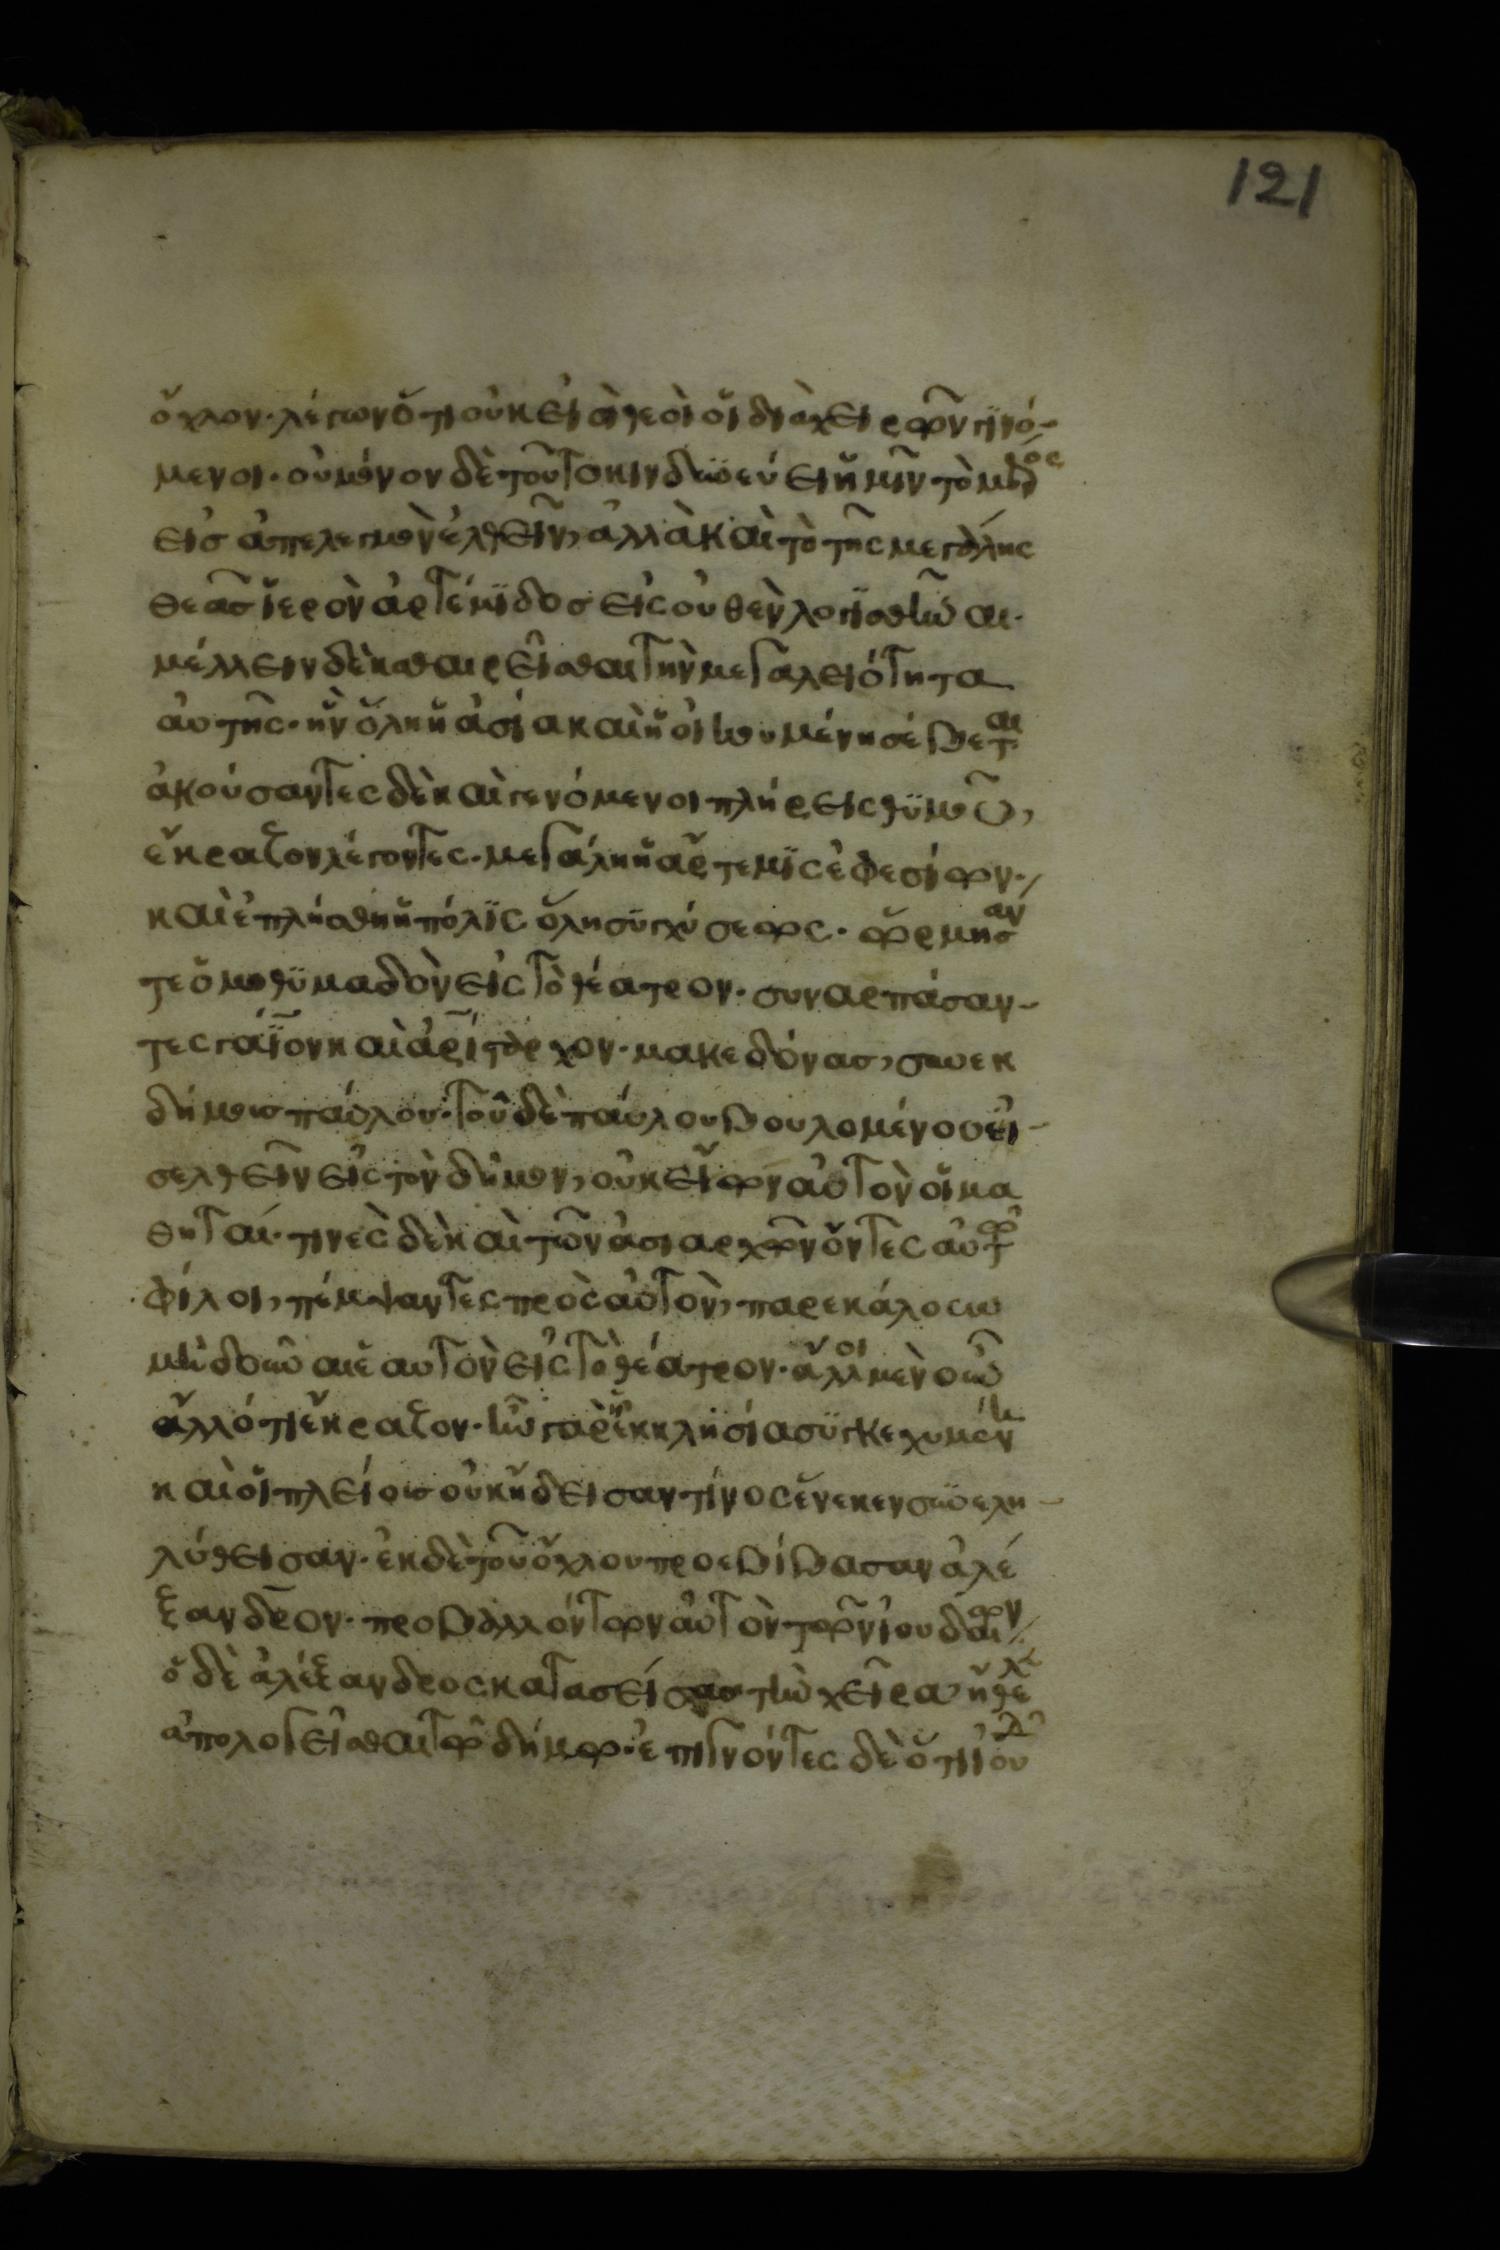 121
ὄχλον· λέγων ὅτι οὐκ εἰσὶ θεοὶ οἱ διὰ χειρῶν γινό-
μενοι· οὐ μόνον δὲ τοῦτο κινδυνεύει ἡμῖν τὸ μέρος
εἰσ ἀπελεγμὸν ἐλθεῖν, ἀλλὰ καὶ τὸ τῆς μεγάλης
θεᾶσ ἱερὸν ἀρτέμϊδοσ εἰς οὐθὲν λογϊσθῆναι·
μέλλειν δὲ καθαιρεῖσθαι τὴν μεγαλειότητα
αὐτῆς· ἣν ὅλη ἡ ἀσία καὶ ἡ οἰκουμένη σέβεται·
ἀκούσαντες δὲ καὶ γενόμενοι πλήρεις θϋμοῦ,
ἔκραζον λέγοντες· μεγάλη ἡ ἄρτεμϊς ἐφεσίων·/
καὶ ἐπλήσθη ἡ πόλϊς ὅλη σϋγχύσεως· ὥρμησαν
τε ὁμοθϋμαδὸν εἰς τὸ θέατρον· συναρπάσαν-
τες γάϊον καὶ ἀρίσταρχον· μακεδόνασ, συνεκ
δήμουσ παύλου· τοῦ δὲ παύλου βουλομένου εἰ-
σελθεῖν εἰς τὸν δῆμον, οὐκ εἴων αὐτὸν οἱ μα
θηταί· τινὲς δὲ καὶ τῶν ἀσιαρχῶν ὄντες αὐτῶ
φίλοι, πέμψαντες πρὸς αὐτὸν, παρεκάλουν
μὴ δοῦναι ἑαυτὸν εἰς τὸ θέατρον· ἄλλοι μὲν οὖν
ἄλλό τι ἔκραζον· ἦν γὰρ ἡ ἐκκλησία σϋγκεχυμένη
καὶ οἱ πλείουσ οὐκ ἤδεισαν τίνος ἕνεκεν συνελη-
λύθεισαν· ἐκ δὲ τοῦ ὄχλου προεβίβασαν ἀλέ
ξανδρον· προβαλλόντων αὐτὸν τῶν ἰουδαίων/
ὁ δὲ ἀλέξανδρος κατασείσασ τὴν χεῖρα ἤθελε
ἀπολογεῖσθαι τῶ δήμω· ἐπιγνόντες δὲ ὅτι ἰουδ